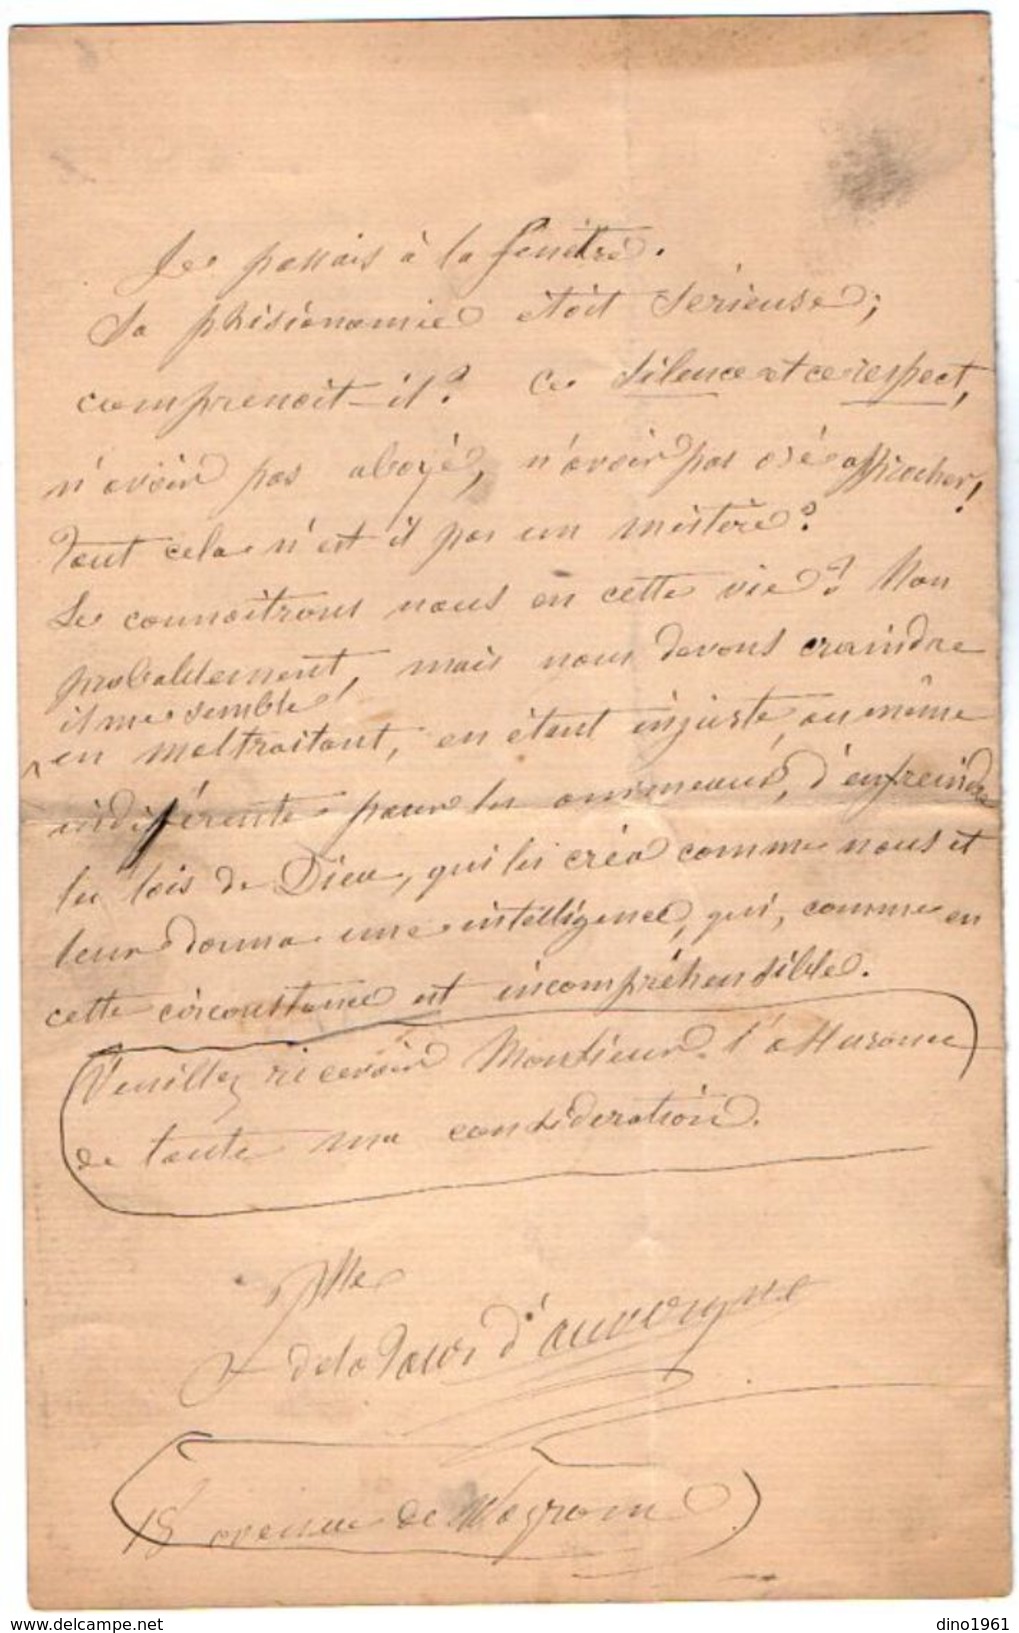 Je passais à la fenêtre.
Sa phisionomie étoit serieuse;
comprenoit-il? ce silence et ce respect,
n'avoir pas aboyé, n'avoir pas osé approcher!
Tout cela n'est il pas un mistère?
Le connoitrons nous en cette vie? Non
probablement, mais nous devons craindre
il me semble
en maltraitant, en étant injuste, ou même
indifférente pour les animeaux, d'enfreindre
les lois de Dieu, qui les créa comme nous et
leur donna une intelligence, qui, comme en
cette circonstance est incompréhensible.
Veuillez recevoir Monsieur l'assurance
de toute ma considération.
Mlle
de la Tour d'auvergne
18 avenue de Wagram
dino1961